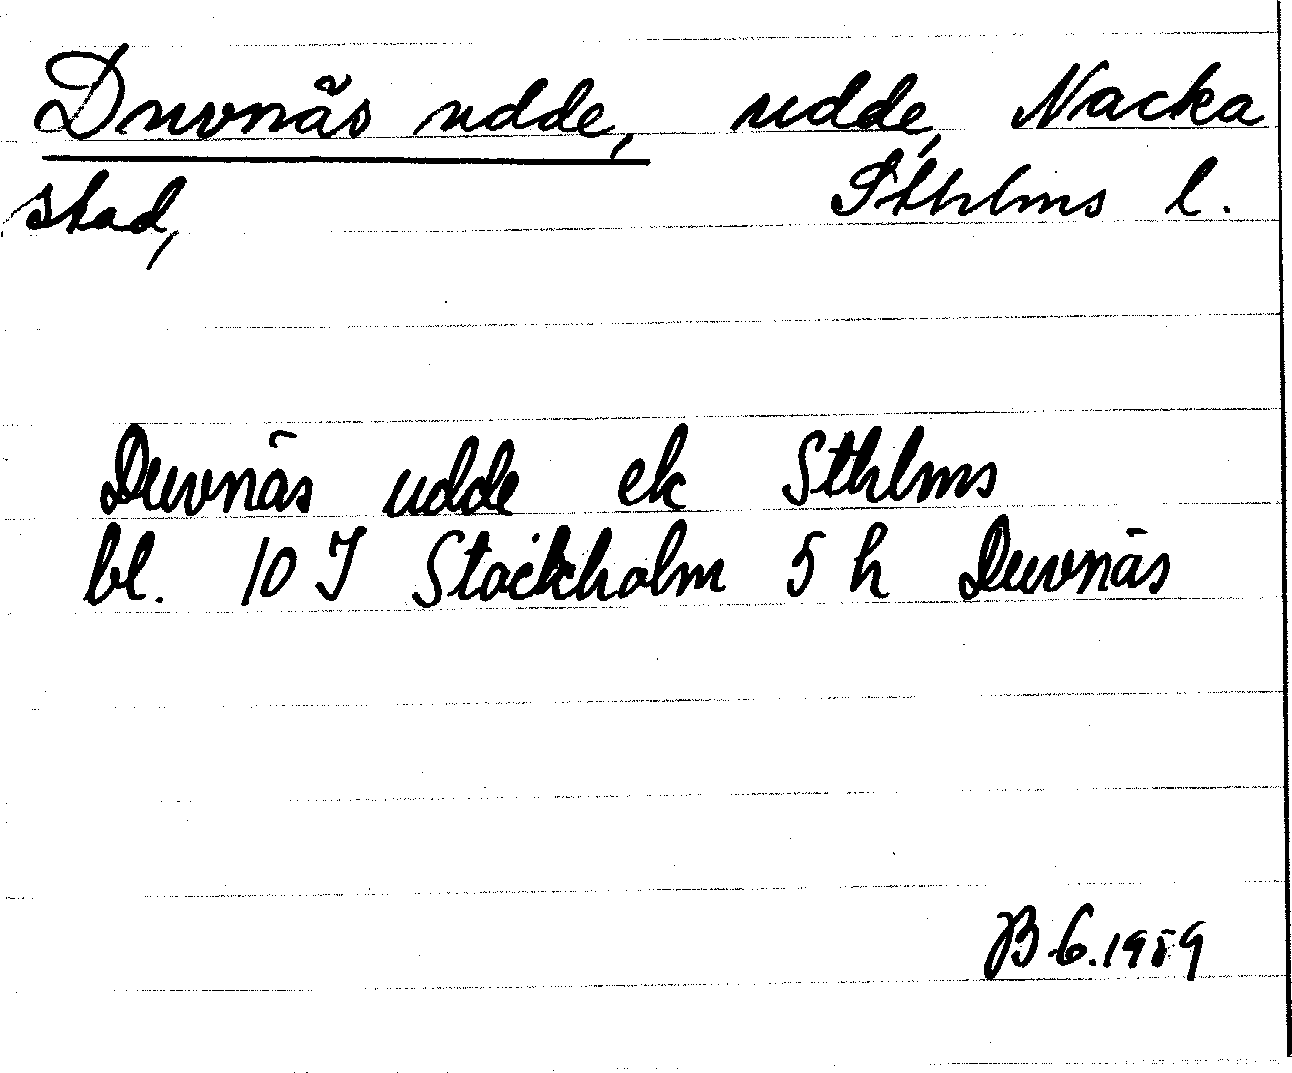 Duvnäs udde, udde, Nacka
stad, Sthlms l.
Duvnäs udde ek Sthlms
bl. 10 I Stockholm 5 h Duvnäs
B 6.1989